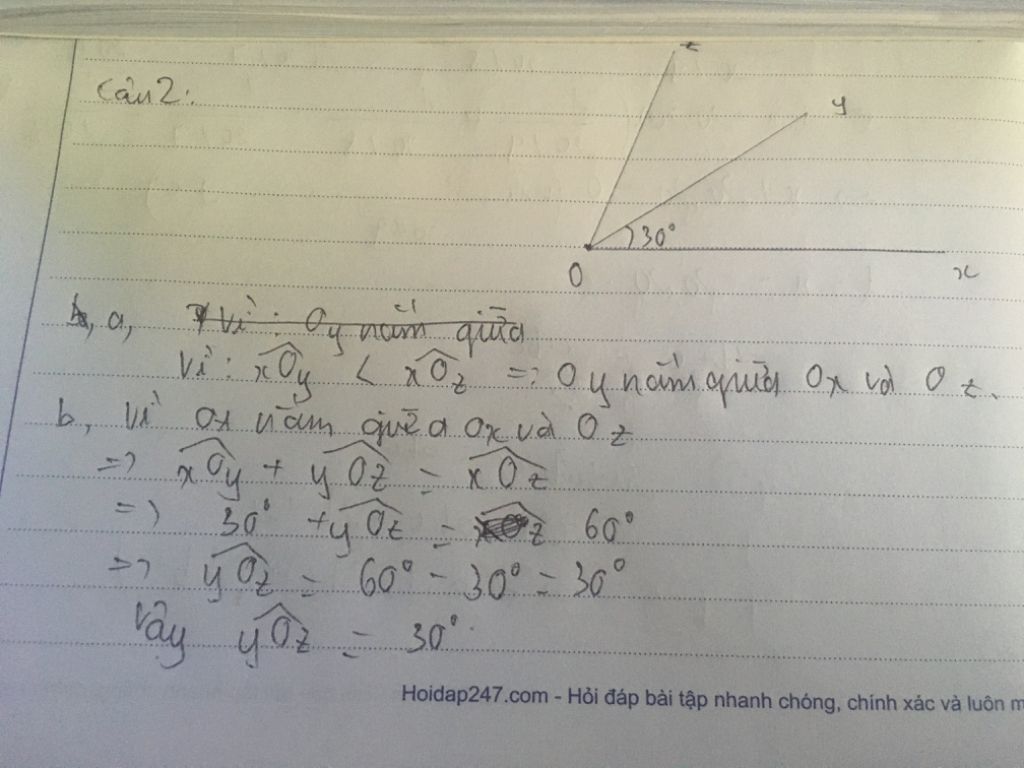 Câu 2:
z
y
30°
O
x
a, Vì: Oy nằm giữa
Vì: xOy < xOz => Oy nằm giữa Ox và Oz.
b, Vì Ox nằm giữa Ox và Oz
=> xOy + yOz = xOz
=> 30° + yOz = 60°
=> yOz = 60° - 30° = 30°
Vây yOz = 30°.
Hoidap247.com - Hỏi đáp bài tập nhanh chóng, chính xác và luôn m